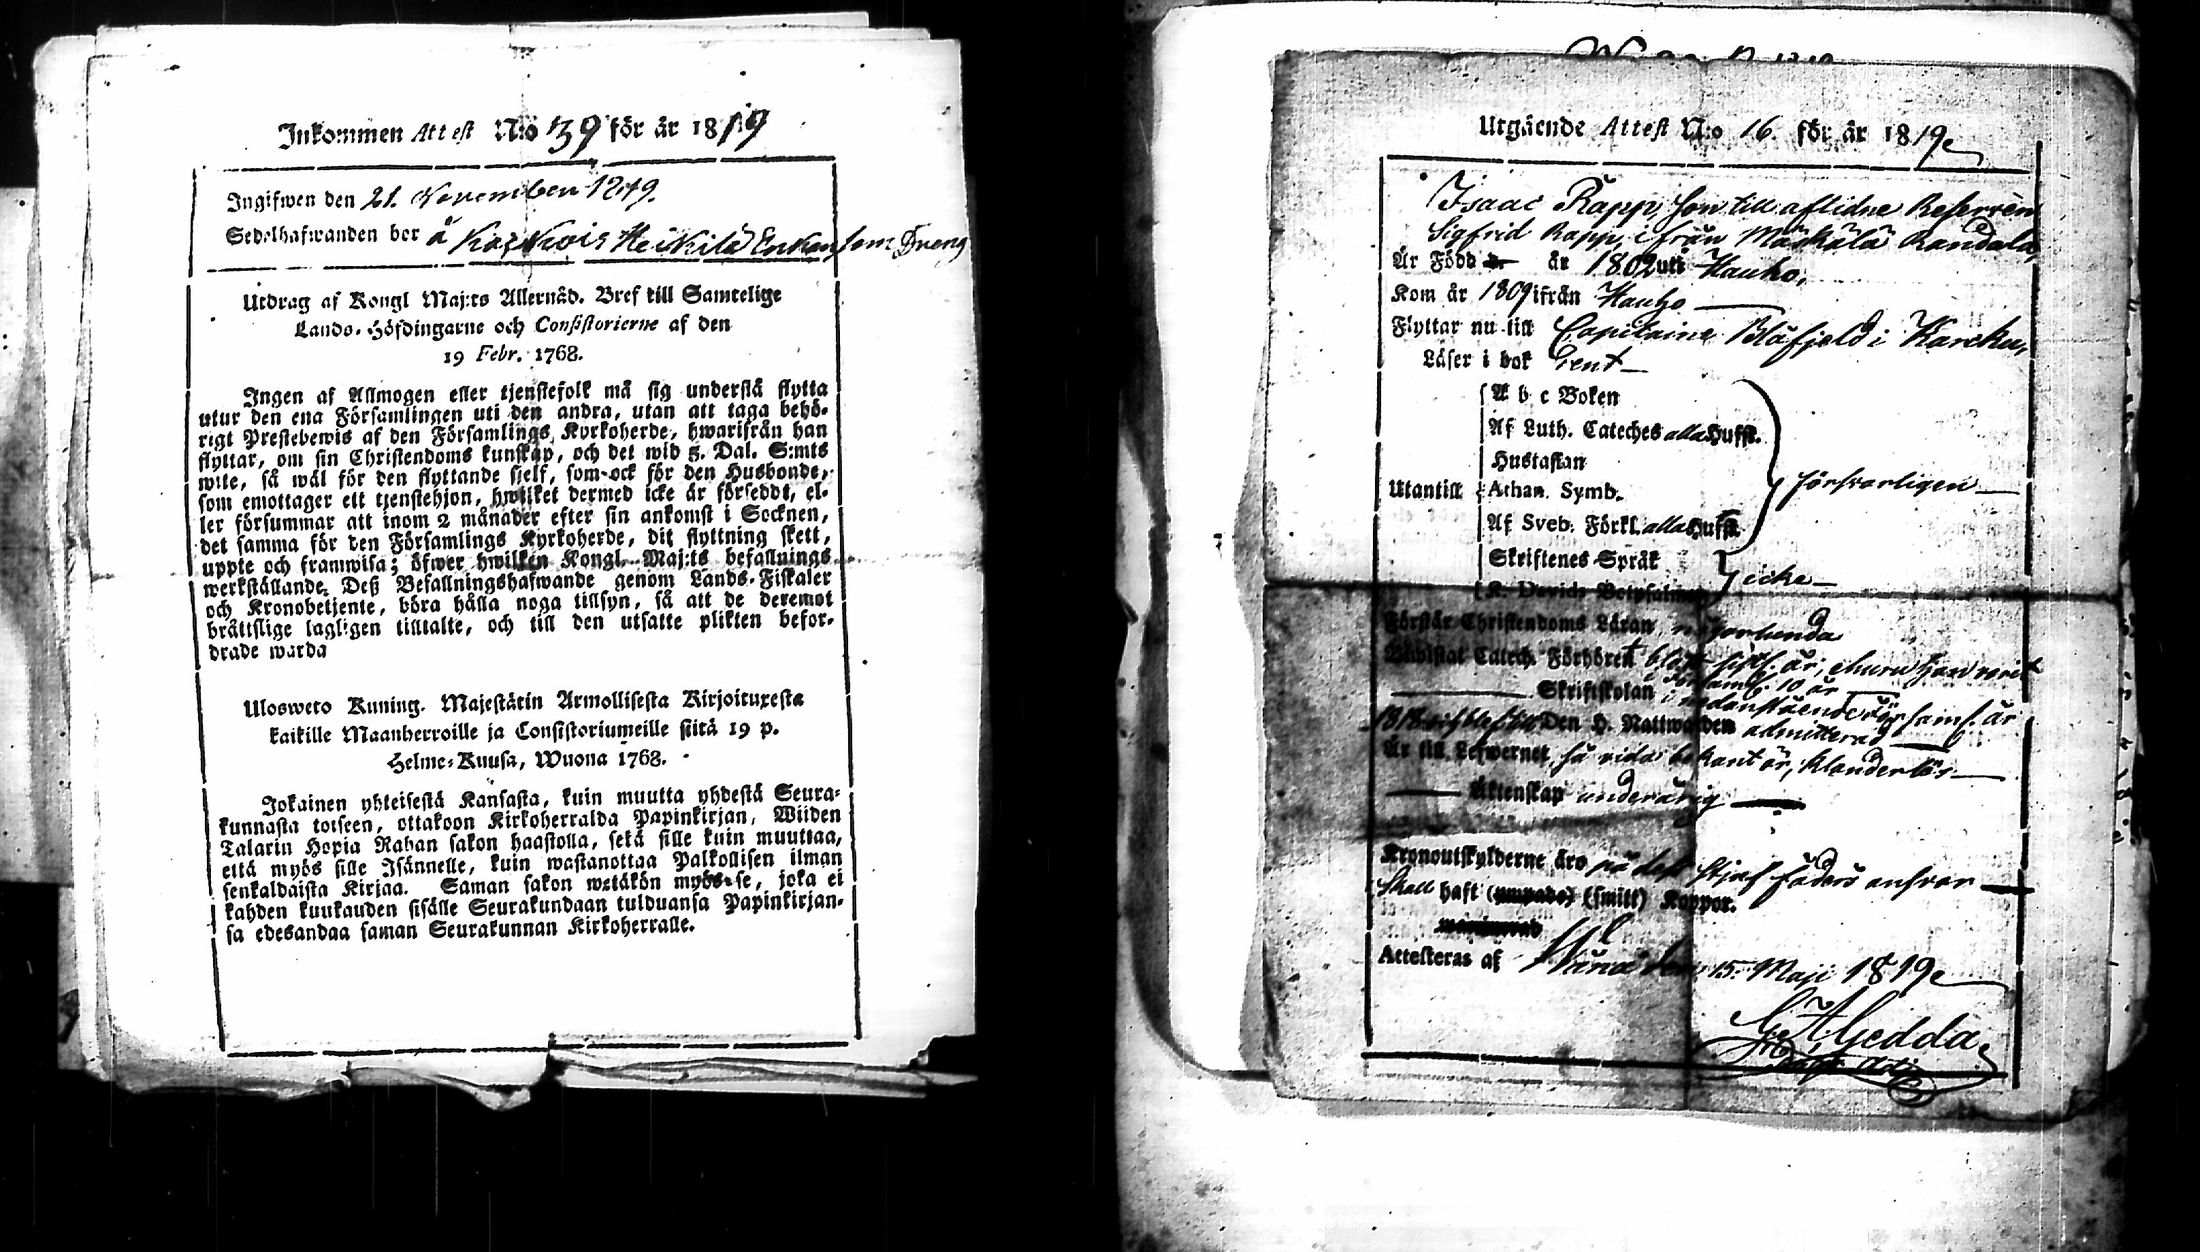 Inkommen Attest N:o 39 för år 1819
Ingifwen den 21. November 1819.
Sedelhafwanden bor å Heikilä Enkan som Dreng
Utdrag af Kongl Maj:ts Allernåd. Bref till Samtelige
Lands-Höfdingarne och Consistorierne af den
19 Febr. 1768.
Ingen af Allmogen eller tjenstefolk må sig understå flytta
utur den ena Församlingen uti den andra, utan att taga behö-
rigt Prestebewis af den Församlings Kyrkoherde, hwarifrån han
flyttar, om sin Christendoms kunskap, och det wid 5. Dal. S:mts
wite, så wäl för den flyttande sjelf, som-ock för den Husbonde,
som emottager ett tjenstehjon, hwilket dermed icke är försedt, el-
ler försummar att inom 2 månader efter sin ankomst i Socknen,
det samma för den Församlings Kyrkoherde, dit flyttning skett,
uppte och framwisa; öfwer hwilken Kongl. Maj:ts befallnings
werkställande, Deß Befallningshafwande genom Lands-Fiskaler
och Kronobetjente, böra hålla noga tillsyn, så att de deremot
bråttslige lagligen tilltalte, och till den utsatte plikten befor-
drade warda
Ulosweto Kuning. Majestätin Armollisesta Kirjoituxesta
kaikille Maanherroille ja Consistoriumeille siitä 19 p.
Helme-Kuusa, Wuona 1768.
Jokainen yhteisestä Kansasta, kuin muutta yhdestä Seura-
kunnasta toiseen, ottakoon Kirkoherralda Papinkirjan, Wiiden
Talarin Hopia Rahan sakon haastolla, sekä sille kuin muuttaa,
että myös sille Isännelle, kuin wastanottaa Palkollisen ilman
senkaldaista Kirjaa. Saman sakon wetäkön myös-se, joka ei
kahden kuukauden sisälle Seurakundaan tulduansa Papinkirjan-
sa edesandaa saman Seurakunnan Kirkoherralle.
Utgående Attest N:o 16. för år 1819
Isaac Rapp, son till aflidne Reserven
Sigfrid Rapp, ifrån Mäskälä Randala,
Är Född år 1802 uti Hauho,
Kom år 1809 ifrån Hauho
Flyttar nu till Capitaine Blåfjeld i Karcku,
Läser i bok rent
A b c Boken
Af Luth. Cateches alla Hufst.
Hustaflan
Utantill Athan. Symb. försvarligen
Af Sveb. Förkl. alla Hufst.
Skriftenes Språk
K. Davids Botpsalmer icke
Förstår Christendoms Läran någorlunda
Bewistat Catech. Förhören blott sistl. år; ehuru han varit
i församl. 10 år
Skriftskolan i nedanstående församl. år
1818 och blef till Den H. Nattwarden admitterad
Är till Lefwernet, så vida bekant är, klanderlös
Äktenskap underårig
Kronoutskylderne äro på dess Stjuf faders ansvar
Skall haft (smitt) Koppor.
Attesteras af den 15. Maji 1819
Gedda